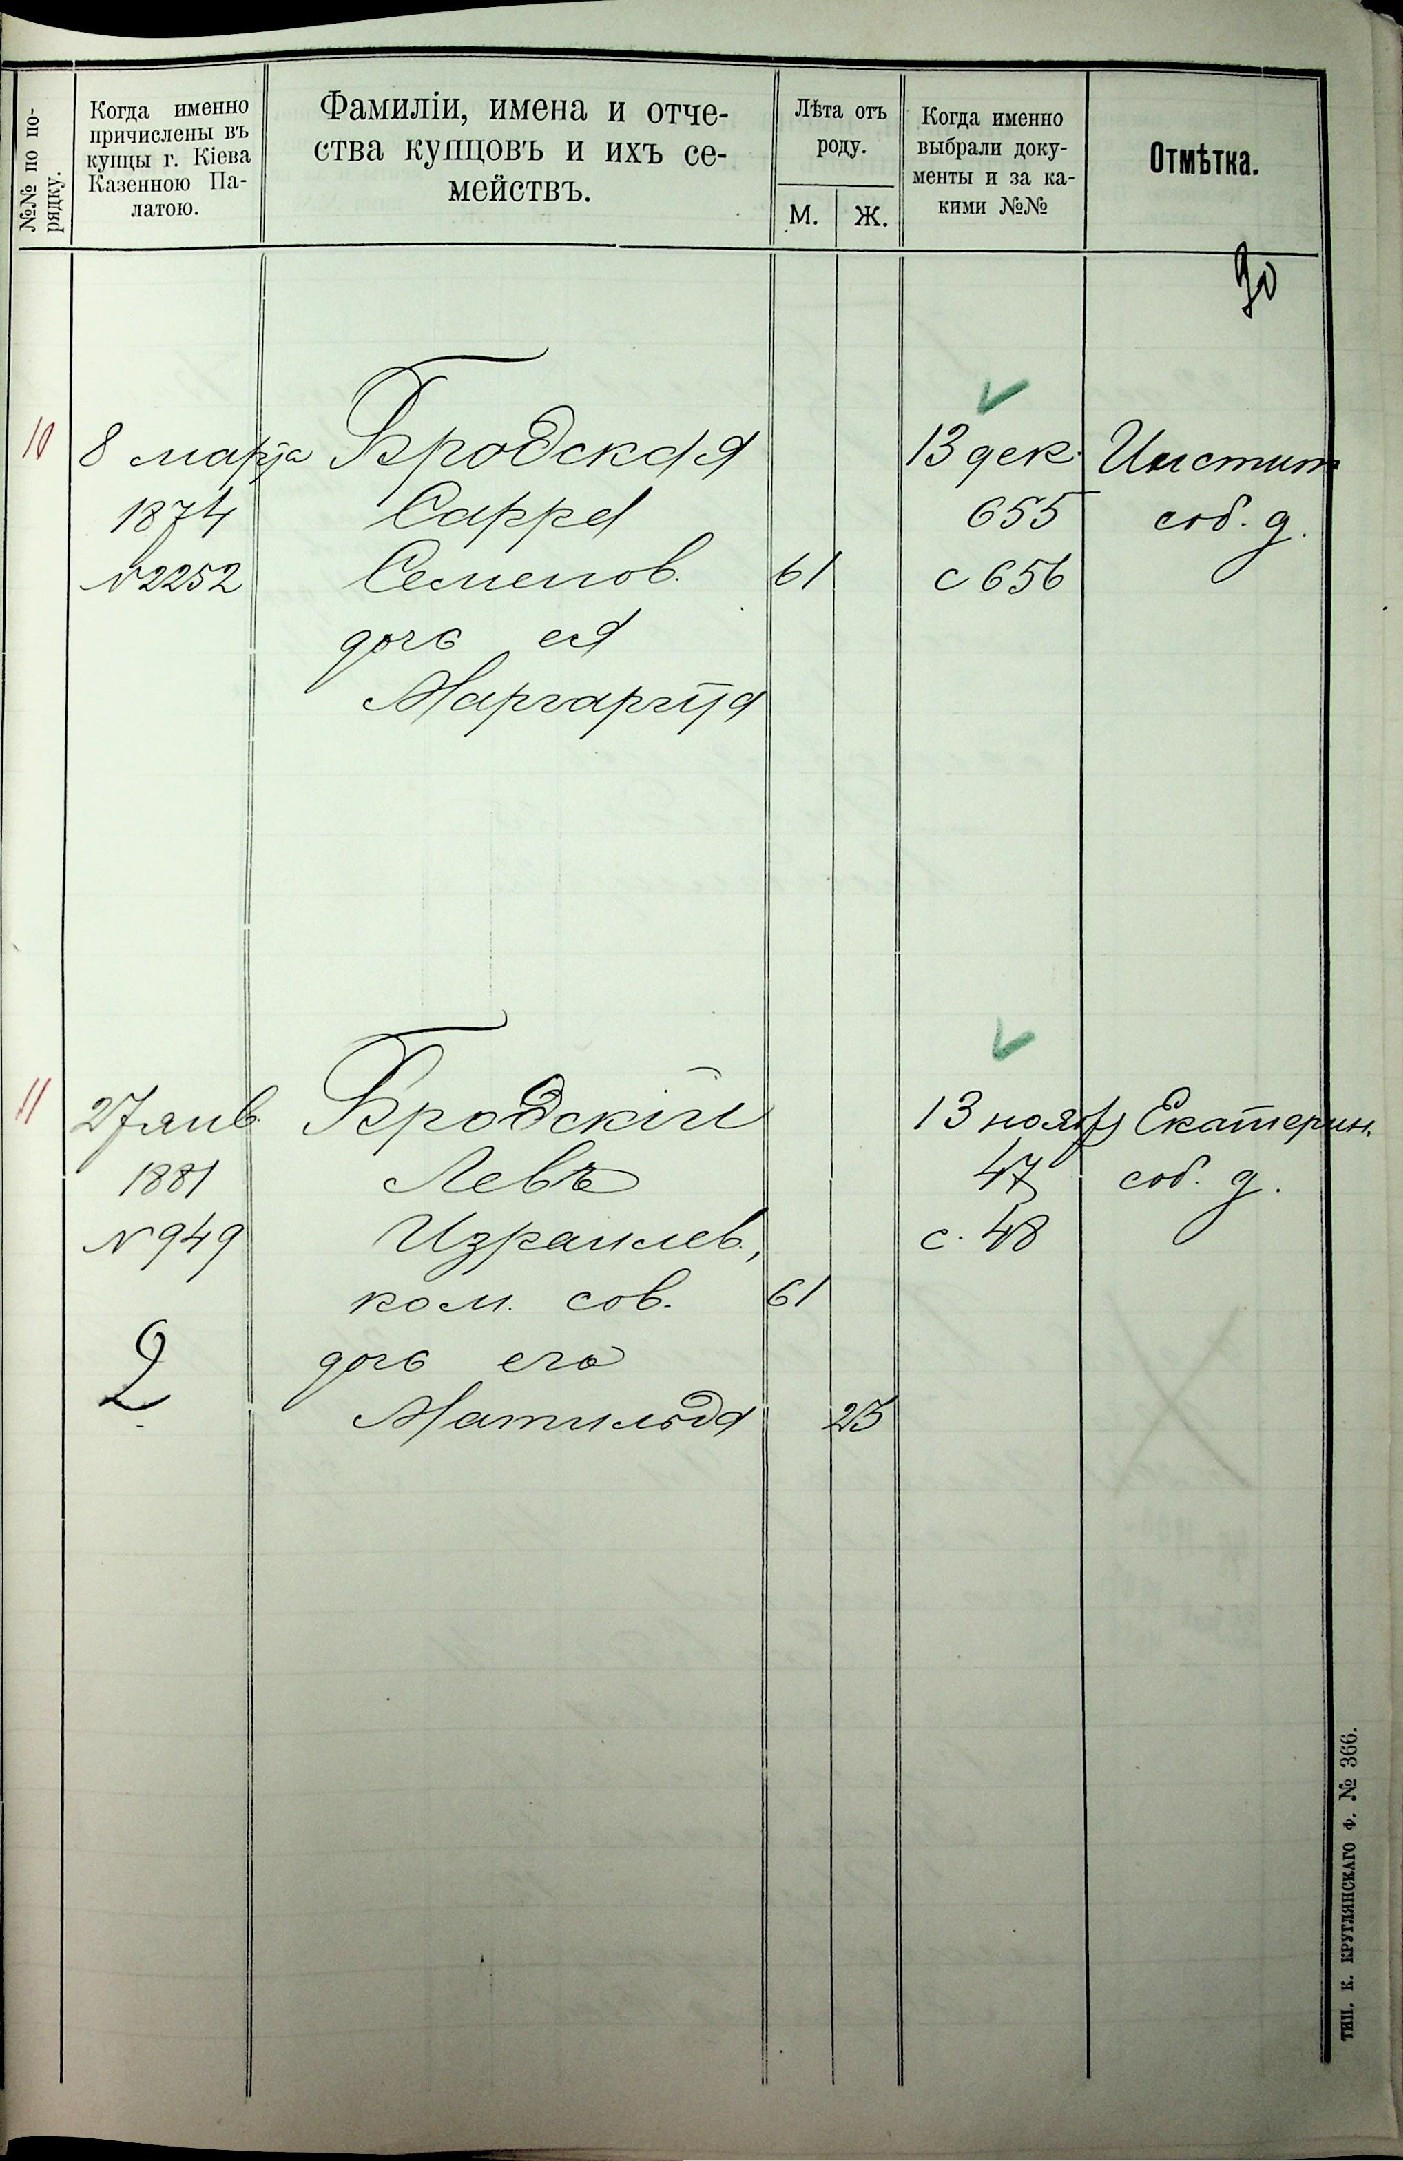 №№ по по-
рядку.
Когда именно
причислены въ
купцы г. Кіева
Казенною Па-
латою.
Фамиліи, имена и отче-
ства купцовъ и ихъ се-
мействъ.
Лѣта отъ
роду.
М.
Ж.
Когда именно
выбрали доку-
менты и за ка-
кими №№
Отмѣтка.
10
8 марта
1874
№2252
Бродская
Сарра
Семенов.
дочь ея
Маргарита
61
13 дек.
655
с 656
Инстит
соб. д.
11
27 янв.
1881
№949
2
Бродскій
Левъ
Израилев.,
ком. сов.
дочь его
Матильда
61
23
13 нояб
47
с. 48
Екатерин.
соб. д.
ТИП. К. КРУГЛЯНСКАГО Ф. № 366.